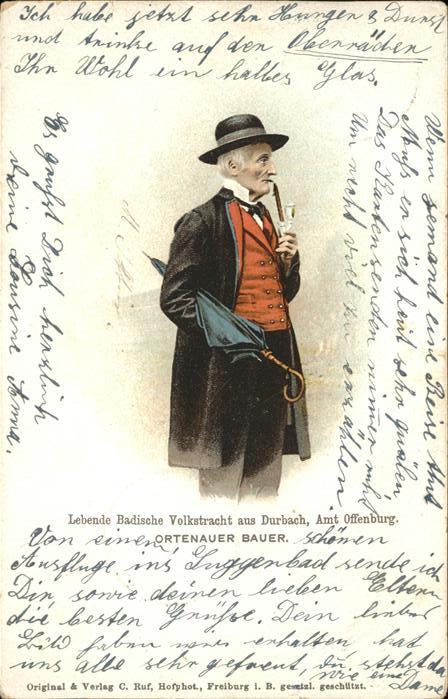 Ich habe jetzt sehr Hunger & Durst
und trinke auf den Oberräden
Ihr Wohl ein halbes Glas.
Wenn jemand eine Reise thut
Muß er sich heut sehr quälen
Das Karten senden nimmt
Um nicht viel zu erzählen
Es grüßt Dich herzlich
deine Cousine Anna.
Lebende Badische Volkstracht aus Durbach, Amt Offenburg.
ORTENAUER BAUER.
Von einem schönen
Ausfluge ins Suggenbad sende ich
Dir sowie deinen lieben Eltern
die besten Grüße. Dein liebes
Bild haben wir erhalten, hat
uns alle sehr gefreut, du stehst da
wie eine Dame
Original & Verlag C. Ruf, Hofphot., Freiburg i. B. gesetzl. geschützt.